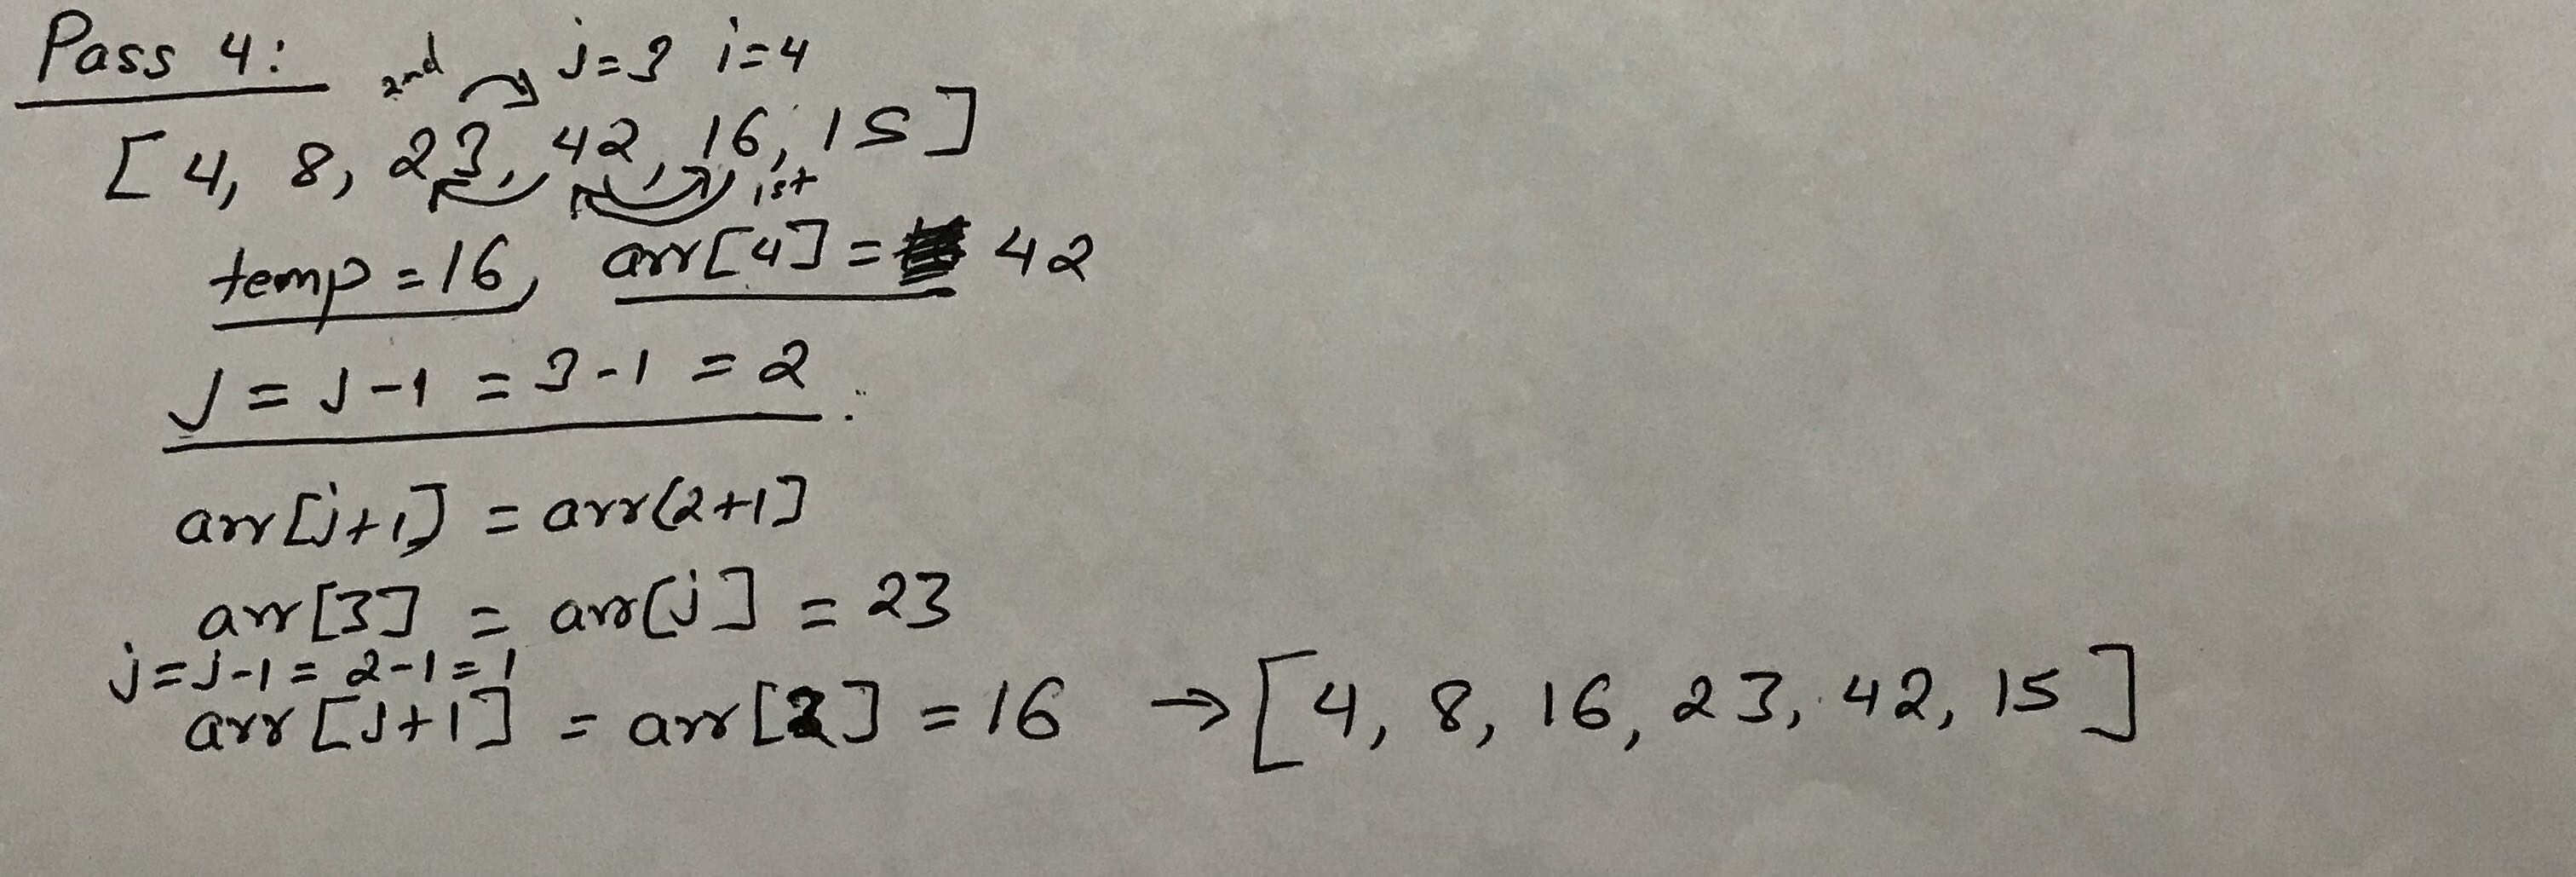 Pass 4:
2nd j=3 i=4
[4, 8, 23, 42, 16, 15]
1st
temp=16, arr[4]= 42
J = J-1 = 3-1 = 2.
arr[j+1] = arr(2+1]
arr[3] = arr[j] = 23
j=J-1= 2-1=1
arr[J+1] = arr[2] = 16 → [4, 8, 16, 23, 42, 15]